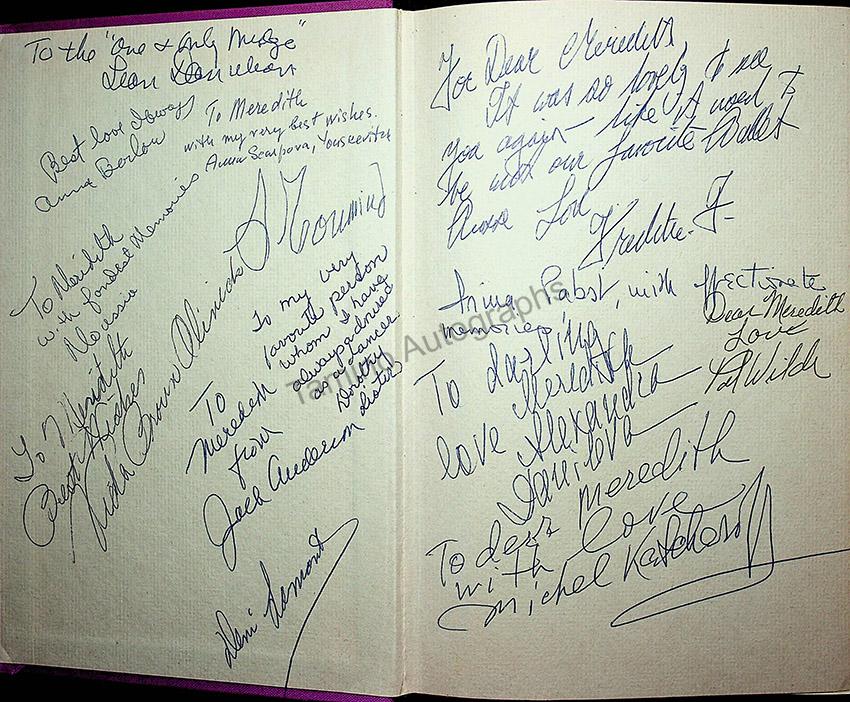 To the "one & only Midge"
Leon Danielian
Best love always
Anna Barlow
To Meredith
with my very best wishes.
Anna Scarpova, Youscevitch
To Meredith
with fondest Memories
Moussia
To Meredith
Best Wishes
Olinida
To my very
favorite person
whom I have
always admired
as a dancer
Dorothy
To
Meredith
from
Jack Anderson
Deni Lamont
For Dear Meredith
It was so lovely to see
you again – like it used to
be with our favorite Ballet
Love
Freddie F
Irina Pabst, with affectionate
memories,
Dear Meredith
Love
Pat Wilde
To darling
Meredith
love Alexandra
Danilova
To dear Meredith
with love
Michel Katcharoff
Tamino Autographs